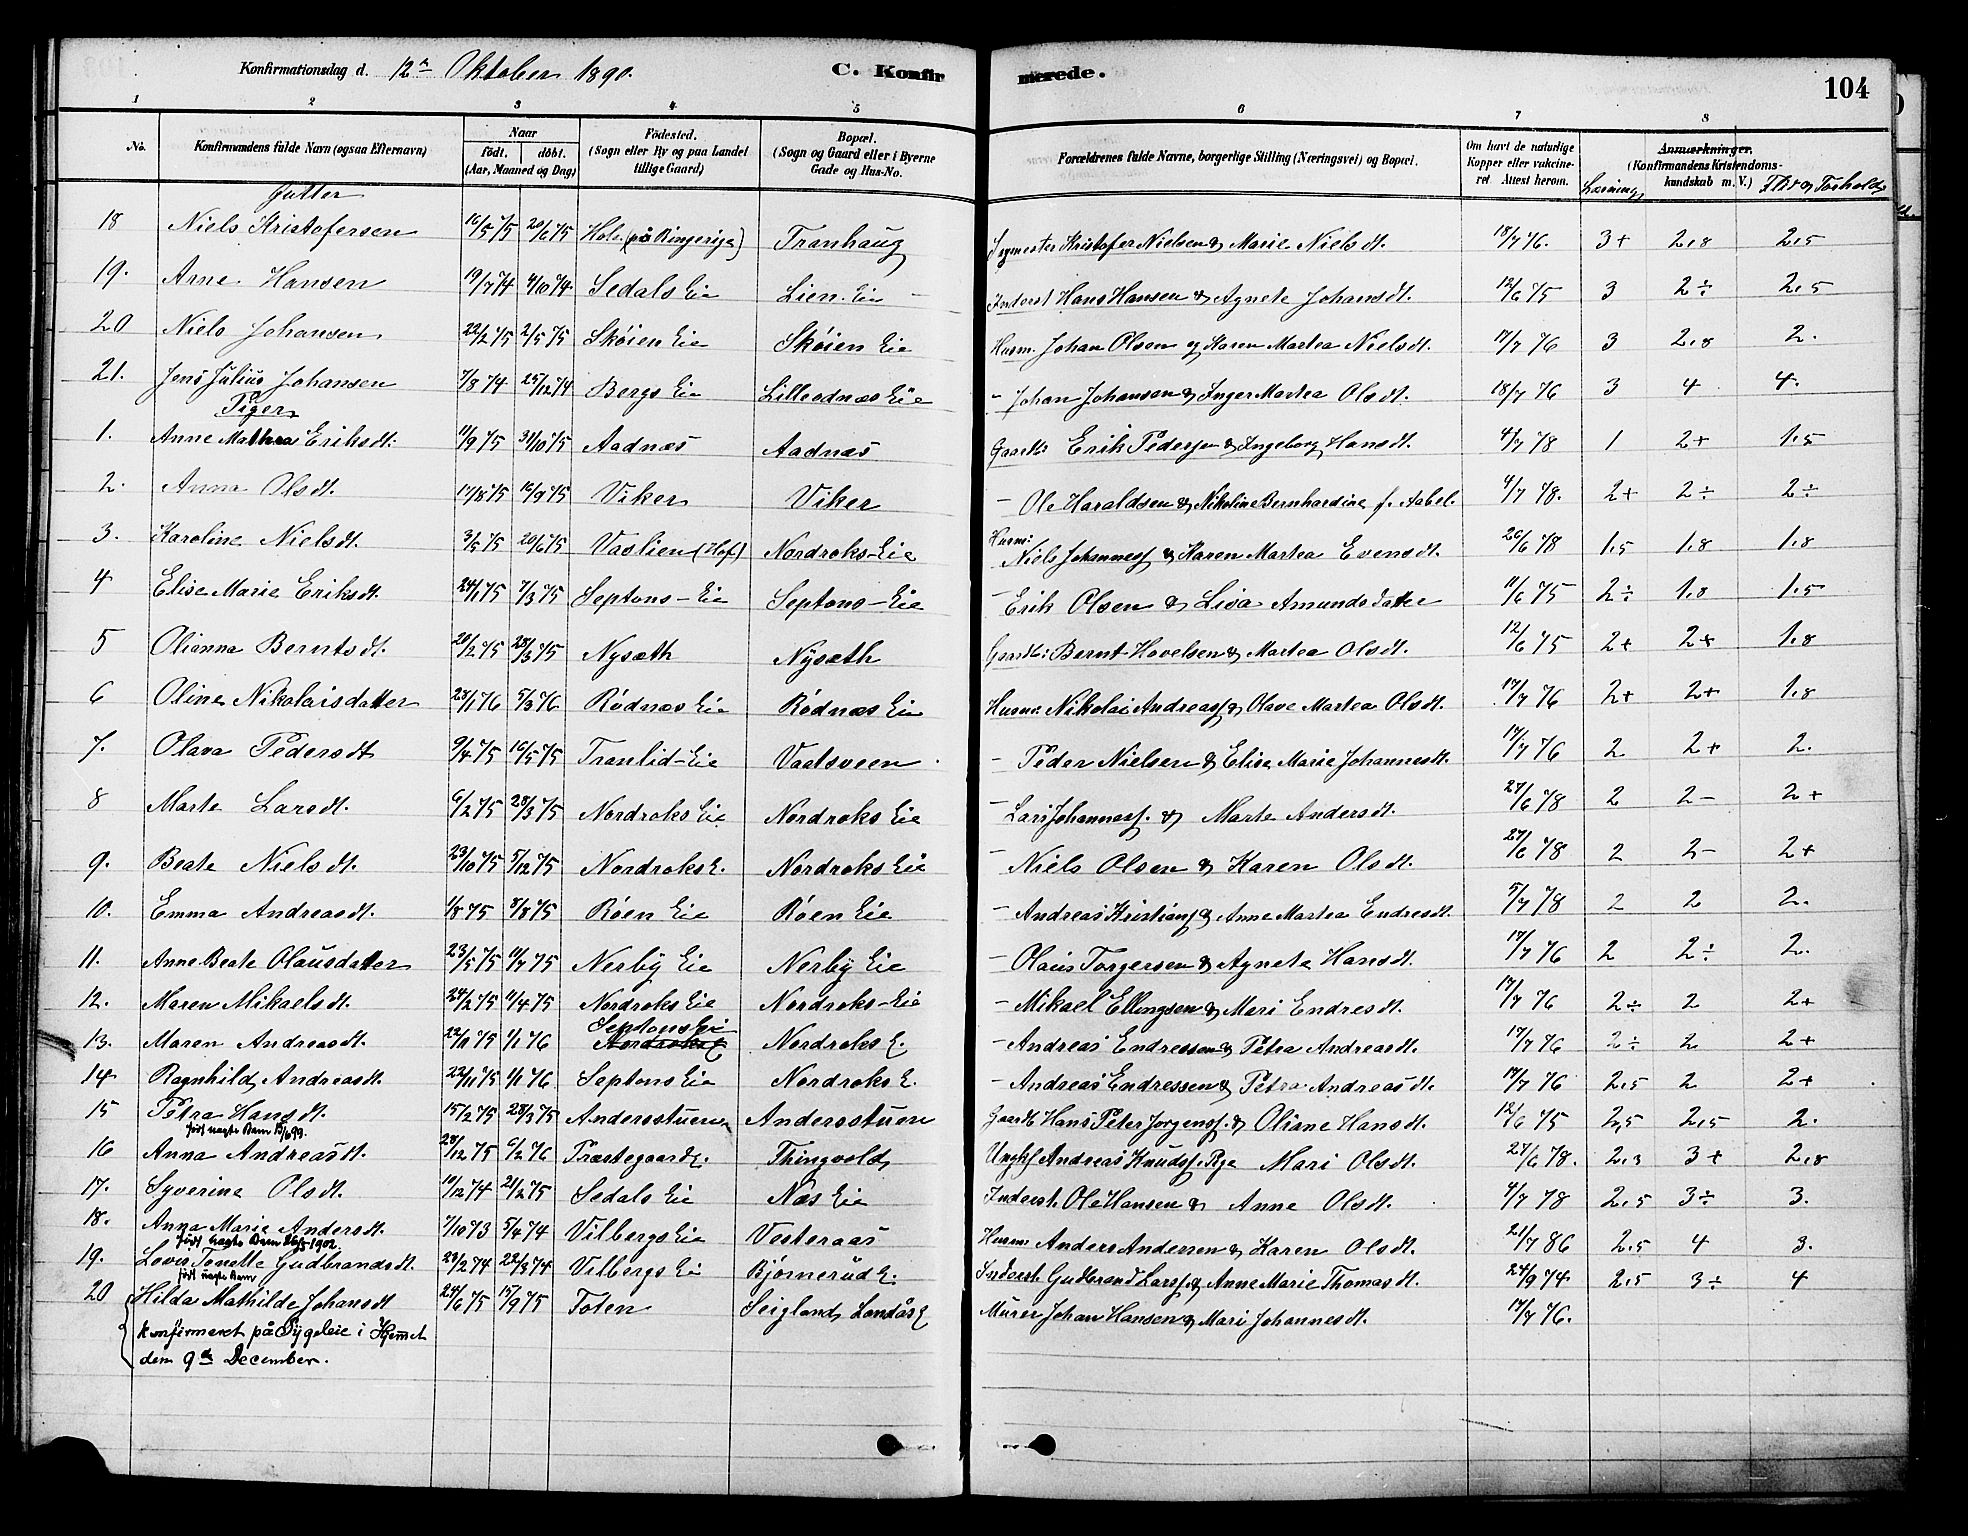 Konfirmationsdag d. 12te Oktober 1890. C. Konfirmerede. 104
1 2 3 4 5 6 7 8
No. Konfirmandens fulde Navn (ogsaa Efternavn) Naar født. døbt. (Aar, Maaned og Dag) Fødested. (Sogn eller By og paa Landet tillige Gaard.) Bopæl. (Sogn og Gaard eller i Byerne Gade og Hus-No. Forældrenes fulde Navne, borgerlige Stilling (Næringsvei) og Bopæl. Om havt de naturlige Kopper eller vakcineret Attest herom. Anmærkninger. (Konfirmandens Kristendomskundskab m. V.) Læsning, Flid og Forhold
Gutter
18 Niels Kristofersen 16/5 75 20/6 75 Hole (på Ringerige) Tranhaug Kristofer Nielsen & Marie Nielsdt. 18/7 76. 3+ 2,8 2,5
19. Arne Hansen 19/7 74 4/10 74 Sedals Eie Lien Eie Inderst Hans Hansen & Agnete Johansdt. 12/6 75 3 2÷ 2,5
20 Niels Johansen 22/2 75 2/5 75 Skøien Eie Skøien Eie Husm. Johan Olsen og Karen Martea Nielsdt. 17/7 76 3 2,8 2.
21. Jens Julius Johansen 7/8 74 25/12 74 Bergs Eie Lilleodnæs Eie – Johan Johansen & Inger Martea Olsdt. 18/7 76 3 4 4.
Piger
1. Anne Mathea Eriksdt. 11/9 75 31/10 75 Aadnæs Aadnæs Gaardb. Erik Pedersen & Ingeborg Hansdt. 4/7 78 1 2+ 1.5
2. Anna Olsdt. 17/8 75 16/9 75 Viker Viker – Ole Haraldsen & Nikoline Bernhardine f. Aabel. 4/7 78. 2+ 2÷ 2÷
3. Karoline Nielsdt. 3/5 75 20/6 75 Vaslien (Hof) Nordroks-Eie Husm: Niels Johanness. & Karen Martea Evensdt. 26/6 78 1.5 1.8 1.8
4 Elise Marie Eriksdt. 24/1 75 7/3 75 Septons-Eie Septons-Eie – Erik Olsen & Lisa Amundsdatter 11/6 75 2÷ 1.8 1.5
5 Olianna Berntsdt. 20/2 75 28/3 75 Nysæth Nysæth Gaardb: Bernt Hovelsen & Martea Olsdt. 12/6 75 2+ 2+ 1.8
6 Oline Nikolaisdatter 23/1 76 5/3 76 Rødnæs Eie Rødnæs Eie Husm: Nikolai Andreass. & Olave Martea Olsdt. 17/7 76 2+ 2+ 1.8
7. Olava Pedersdt 9/4 75 16/5 75 Tranlid-Eie Vaalsveen – Peder Nielsen & Elise Marie Johannesdt. 17/7 76 2 2+ 2.
8 Marte Larsdt. 6/2 75 28/3 75 Nordroks Eie Nordroks Eie – Lars Johanness. & Marte Andersdt. 27/6 78 2 2– 2+
9. Beate Nielsdt. 23/10 75 5/12 75 Nordroks E. Nordroks Eie – Niels Olsen & Karen Olsdt. 27/6 78 2 2– 2+
10. Emma Andreasdt. 1/8 75 8/8 75 Røen Eie Røen Eie – Andreas Kristians. & Anne Martea Endresdt. 5/7 78 2 2 2.
11. Anne Beate Olausdatter 23/5 75 11/7 75 Nerby Eie Nerby Eie – Olaus Torgersen & Agnete Hansdt. 17/7 76 2 2÷ 2.
12. Maren Mikaelsdt. 24/2 75 11/4 75 Nordroks Eie Nordroks-Eie – Mikael Ellingsen & Mari Endresdt. 17/7 76 2÷ 2 2+
13. Maren Andreasdt. 22/11 75 1/1 76 Septons Eie Nordroks E Nordroks E. – Andreas Endressen & Petra Andreasdt. 17/7 76 2÷ 2 2+
14 Ragnhild Andreasdt. 22/11 75 1/1 76 Septons Eie Nordroks E. – Andreas Endressen & Petra Andreasdt. 17/7 76 2,5 2 2+
15 Petra Hansdt. 15/2 75 28/3 75 Andersstuen Andersstuen Gaardb Hans Peter Jorgenss. & Oliane Hansdt. 12/6 75 2,5 2,5 2.
født uægte Barn
16 Anna Andreasdt. 28/12 75 6/2 76 Præstegaards E. Thingvold Ungk Andreas Knudss. Rye Mari Olsdt. 27/6 78. 2.3 3+ 2,8
17. Syverine Olsdt. 19/12 74 21/2 75 Sedals Eie Næs Eie Inderst. Ole Hansen & Anne Olsdt. 4/7 78 2,5 3÷ 3.
18. Anna Marie Andersdt. 7/10 73 5/4 74 Vilbergs Eie Vesteraas Husm: Anders Andersen & Karen Olsdt. 21/7 86 2.5 4 3.
født uægte Barn 1902.
19. Lovise Tonette Gudbrandsdt. 23/2 74 22/3 74 Vilbergs Ei Bjørnerud E. Inderst. Gudbrand Larss. & Anne Marie Thomasdt. 24/9 74 2.5 3÷ 4
født uægte Barn
20 Hilda Mathilde Johansdt 24/6 75 15/9 75 Toten Seigland, Landås E Murer Johan Hansen & Mari Johannesdt. 17/7 76.
konfirmeret på Sygeleie i Hjemmet
den 9de December.